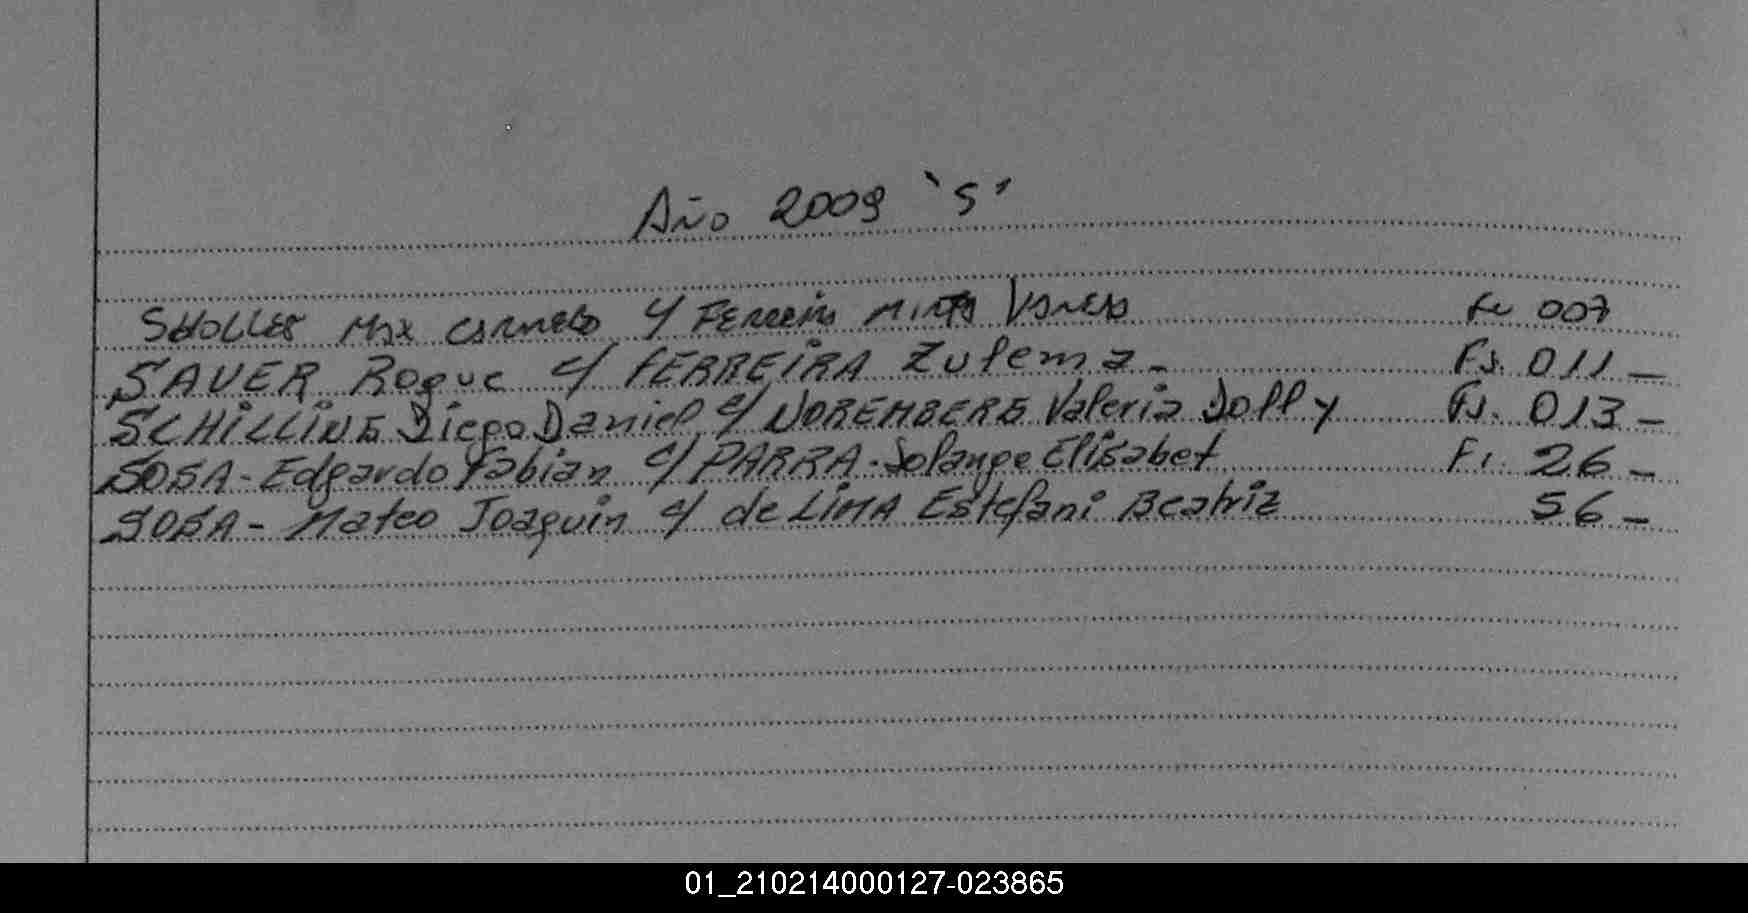 Año 2009 "S"
SHOLLER Max Carmelo y Ferreira Mirta Vanesa Fs 007
SAUER Roque c/ FERREIRA Zulema - Fs. 011 -
SCHILLING Diego Daniel c/ NOREMBERG Valeria Dolly Fs. 013 -
SOSA - Edgardo Fabian c/ PARRA - Solange Elisabet Fs. 26 -
SOSA - Mateo Joaquin c/ de LIMA Estefani Beatriz 56 -
01_210214000127-023865